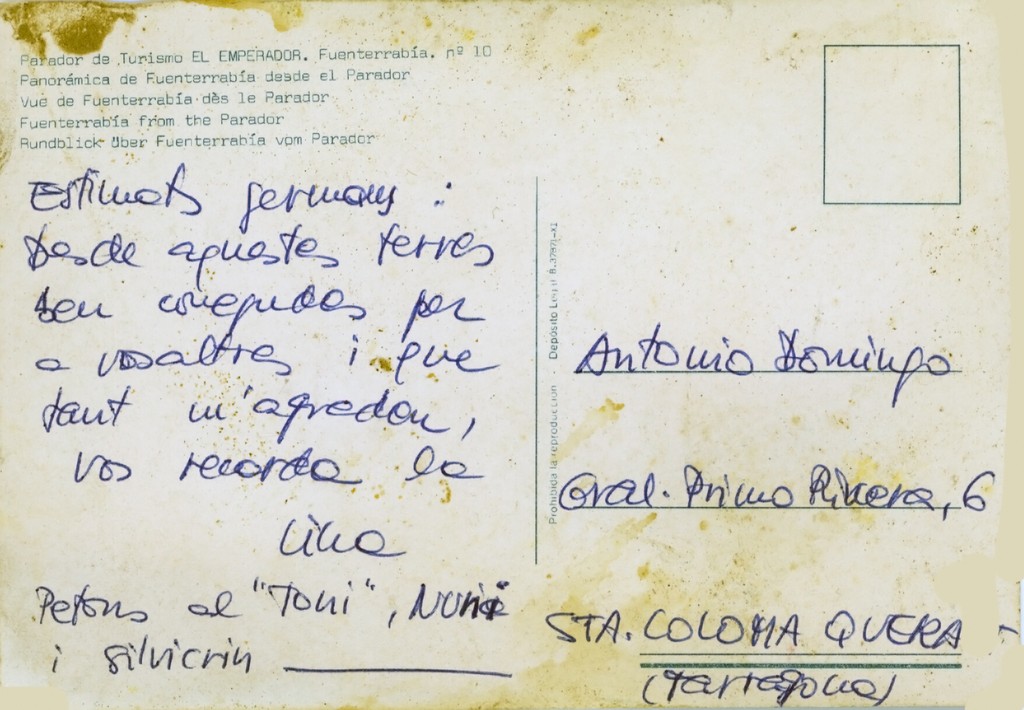 Parador de Turismo EL EMPERADOR. Fuenterrabía. nº 10
Panorámica de Fuenterrabía desde el Parador
Vue de Fuenterrabía dès le Parador
Fuenterrabía from the Parador
Rundblick über Fuenterrabía vom Parador
Estimats germans :
Desde aquestes terres
ben conegudes per
a vosaltres i que
tant m'agraden,
vos recorda la
Prohibida la reproducción - Depósito Legal B.
Antonio Domingo
Gral. Primo Rivera, 6
STA. COLOMA QUERA
(Tarragona)
Petons al "Toni", Nuria
i